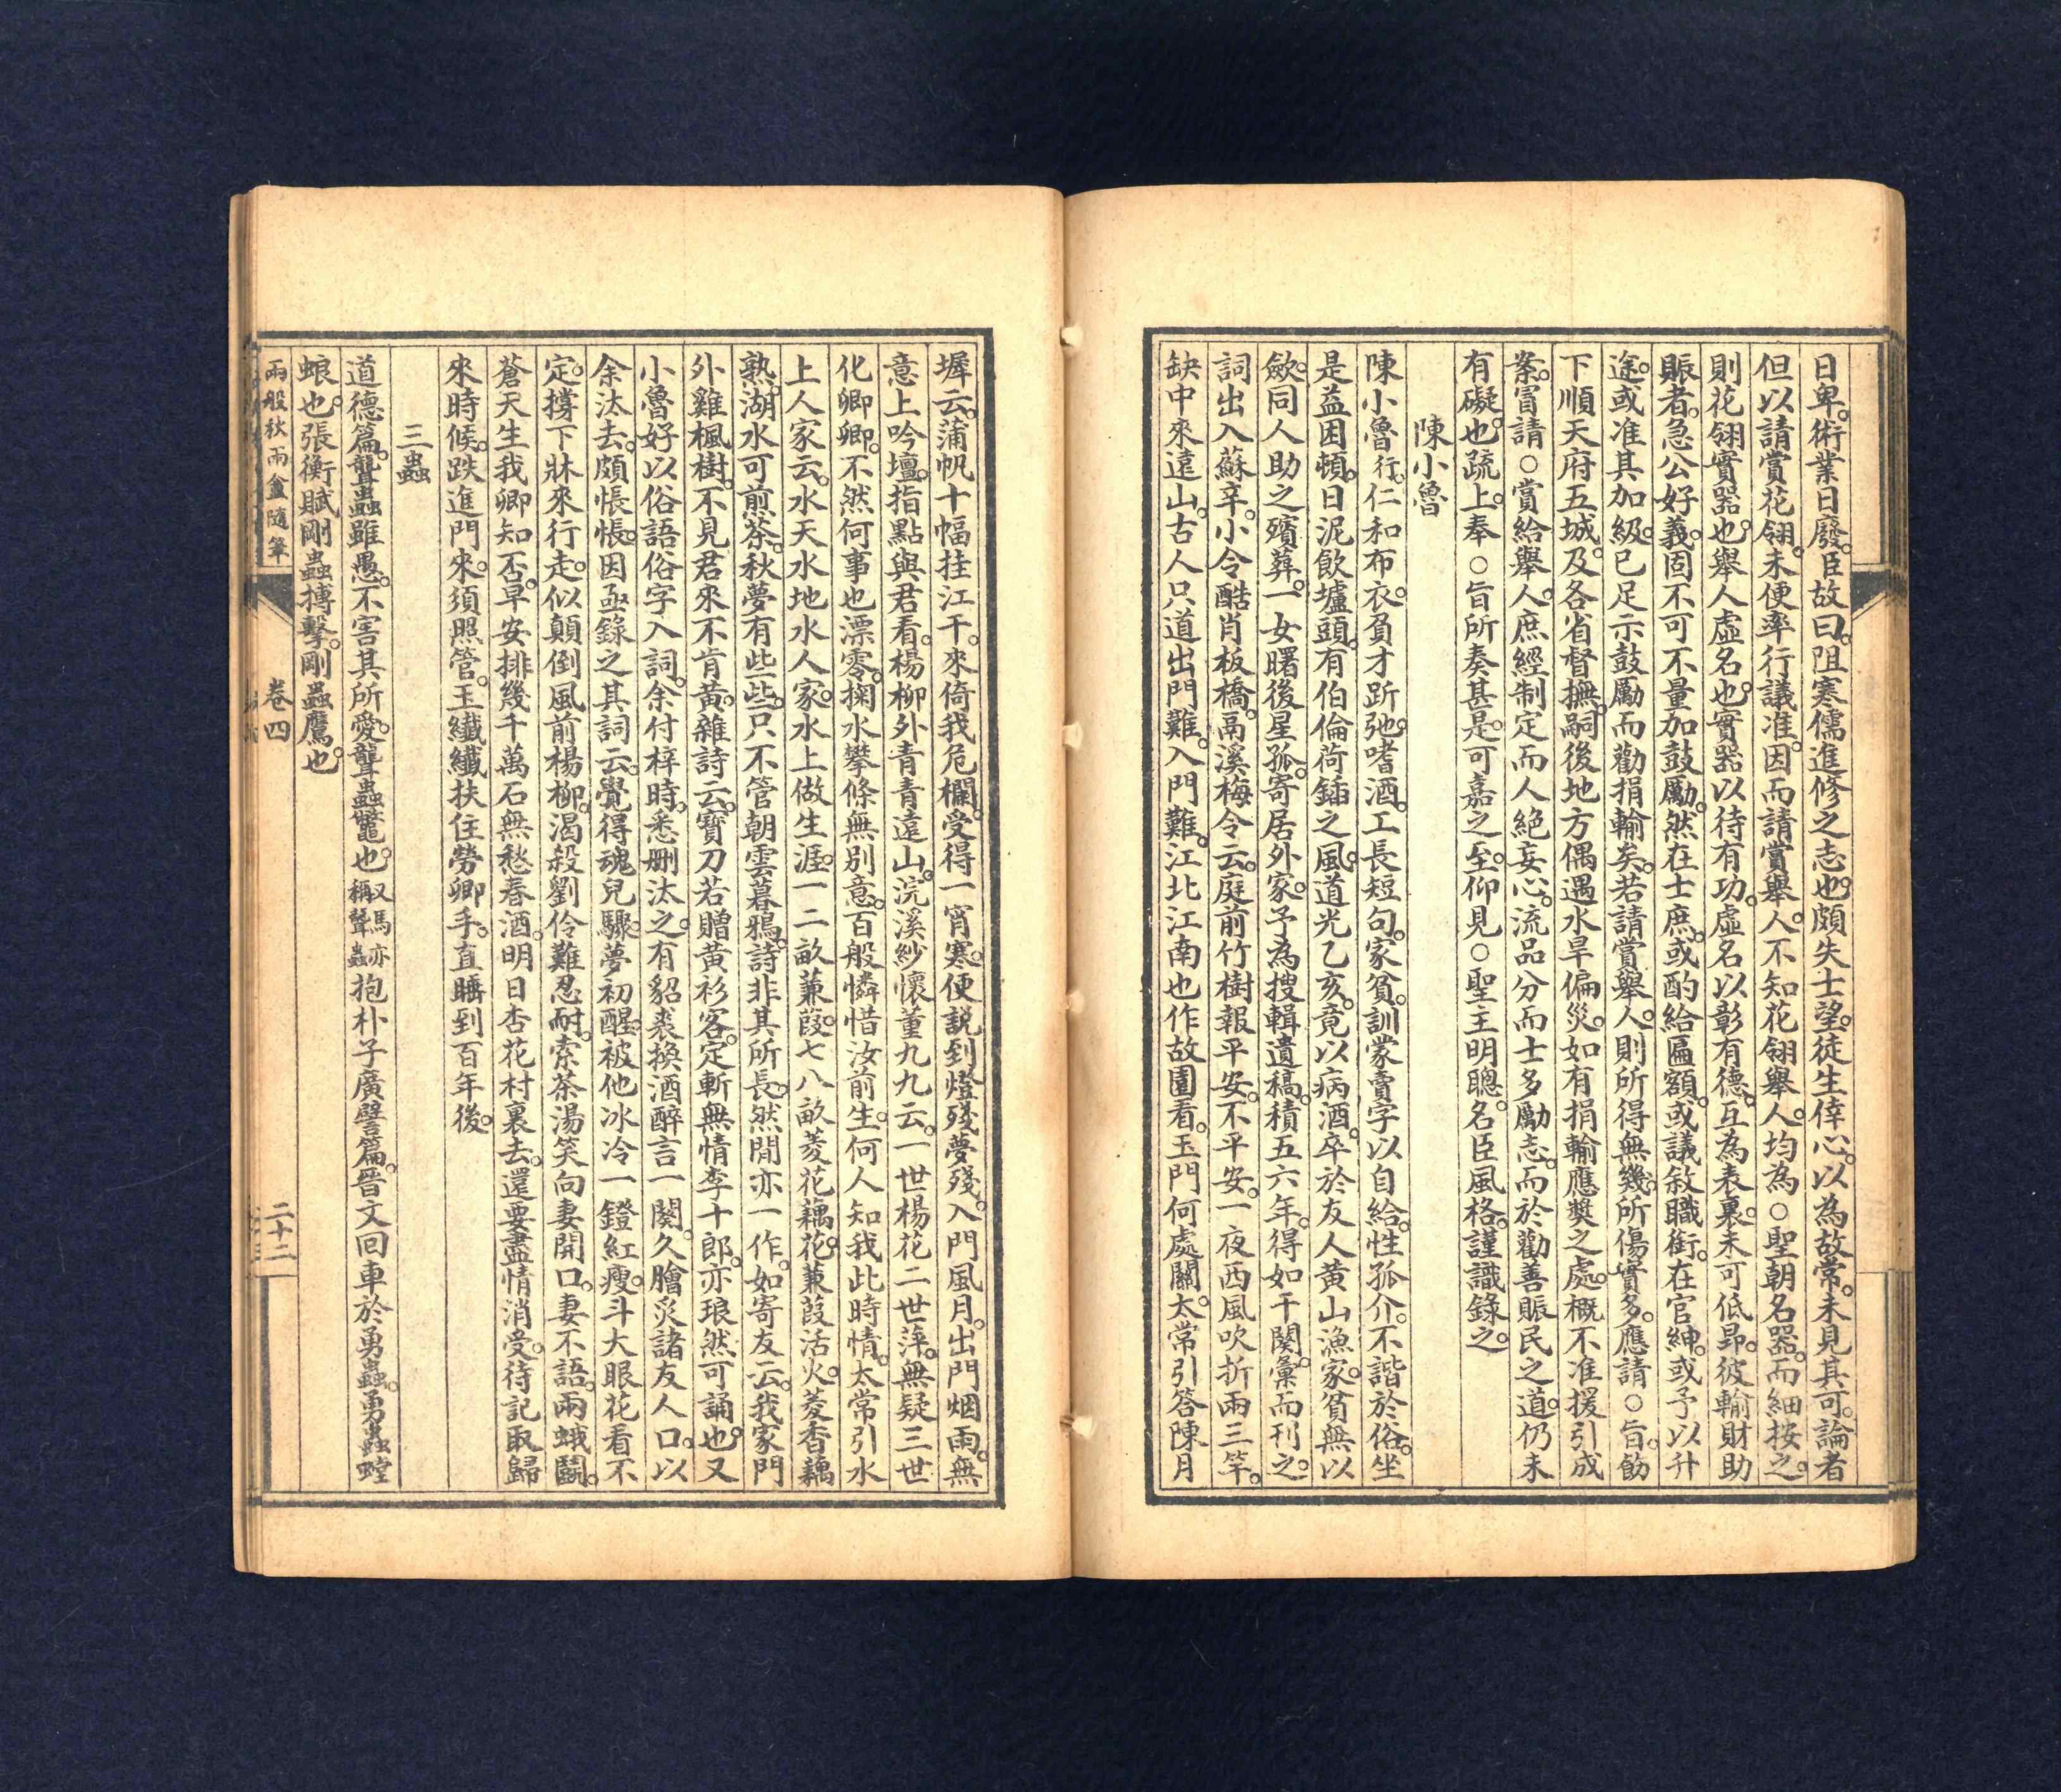 日卑。術業日廢。臣故曰。阻寒儒進修之志也。頗失士望。徒生倖心。以為故常。未見其可。論者
但以請賞花翎。未便率行議准。因而請賞舉人。不知花翎舉人。均為○聖朝名器。而細按之。
則花翎實器也。舉人虛名也。實器以待有功。虛名以彰有德。互為表裏。未可低昂。彼輸財助
賑者。急公好義。固不可不量加鼓勵。然在士庶。或酌給匾額。或議敘職銜。在官紳。或予以升
途。或准其加級。已足示鼓勵而勸捐輸矣。若請賞舉人。則所得無幾。所傷實多。應請○旨。飭
下順天府五城。及各省督撫。嗣後地方偶遇水旱偏災。如有捐輸應獎之處。概不准援引成
案。冒請○賞給舉人。庶經制定而人絕妄心。流品分而士多勵志。而於勸善賑民之道。仍未
有礙也。疏上。奉○旨所奏甚是。可嘉之至。仰見○聖主明聰。名臣風格。謹識錄之。
陳小魯
陳小魯行。仁和布衣。負才跅弛。嗜酒。工長短句。家貧。訓蒙賣字以自給。性孤介。不諧於俗。坐
是益困頓。日泥飲壚頭。有伯倫荷鍤之風。道光乙亥。竟以病酒。卒於友人黃山漁家。貧無以
歛。同人助之殯葬。一女曙後星孤。寄居外家。予為搜輯遺稿。積五六年。得如干闋。彙而刊之。
詞出入蘇辛。小令酷肖板橋。鬲溪梅令云。庭前竹樹報平安。不平安。一夜西風吹折兩三竿。
缺中來遠山。古人只道出門難。入門難。江北江南也作故園看。玉門何處關。太常引答陳月
墀云。蒲帆十幅挂江干。來倚我危欄。受得一宵寒。便説到燈殘夢殘。入門風月。出門烟雨。無
意上吟壇。指點與君看。楊柳外青青遠山。浣溪紗懷董九九云。一世楊花二世萍。無疑三世
化卿卿。不然何事也漂零。掬水攀條無別意。百般憐惜汝前生。何人知我此時情。太常引水
上人家云。水天水地水人家。水上做生涯。一二畝蒹葭。七八畝菱花藕花。蒹葭活火。菱香藕
熟。湖水可煎茶。秋夢有些些。只不管朝雲暮鴉。詩非其所長。然間亦一作。如寄友云。我家門
外雞楓樹。不見君來不肯黃。雜詩云。寶刀若贈黃衫客。定斬無情李十郎。亦琅然可誦也。又
小魯好以俗語俗字入詞。余付梓時。悉刪汰之。有貂裘換酒醉言一闋。久膾炙諸友人口。以
余汰去。頗悵悵。因亟錄之。其詞云。覺得魂兒驟。夢初醒。被他冰冷一鐙紅瘦。斗大眼花看不
定。撐下牀來行走。似顛倒風前楊柳。渴殺劉伶難忍耐。索茶湯笑向妻開口。妻不語。兩蛾鬬。
蒼天生我卿知否。早安排幾千萬石無愁春酒。明日杏花村裏去。還要盡情消受。待記取歸
來時候。跌進門來。須照管。玉纖纖扶住勞卿手。直睡到百年後。
三蟲
道德篇。聾蟲雖愚。不害其所愛。聾蟲鼈也。又馬亦稱聾蟲抱朴子廣譬篇。晉文回車於勇蟲。勇蟲螳
蜋也。張衡賦。剛蟲搏擊。剛蟲鷹也。
兩般秋雨盦隨筆
卷四
二十二